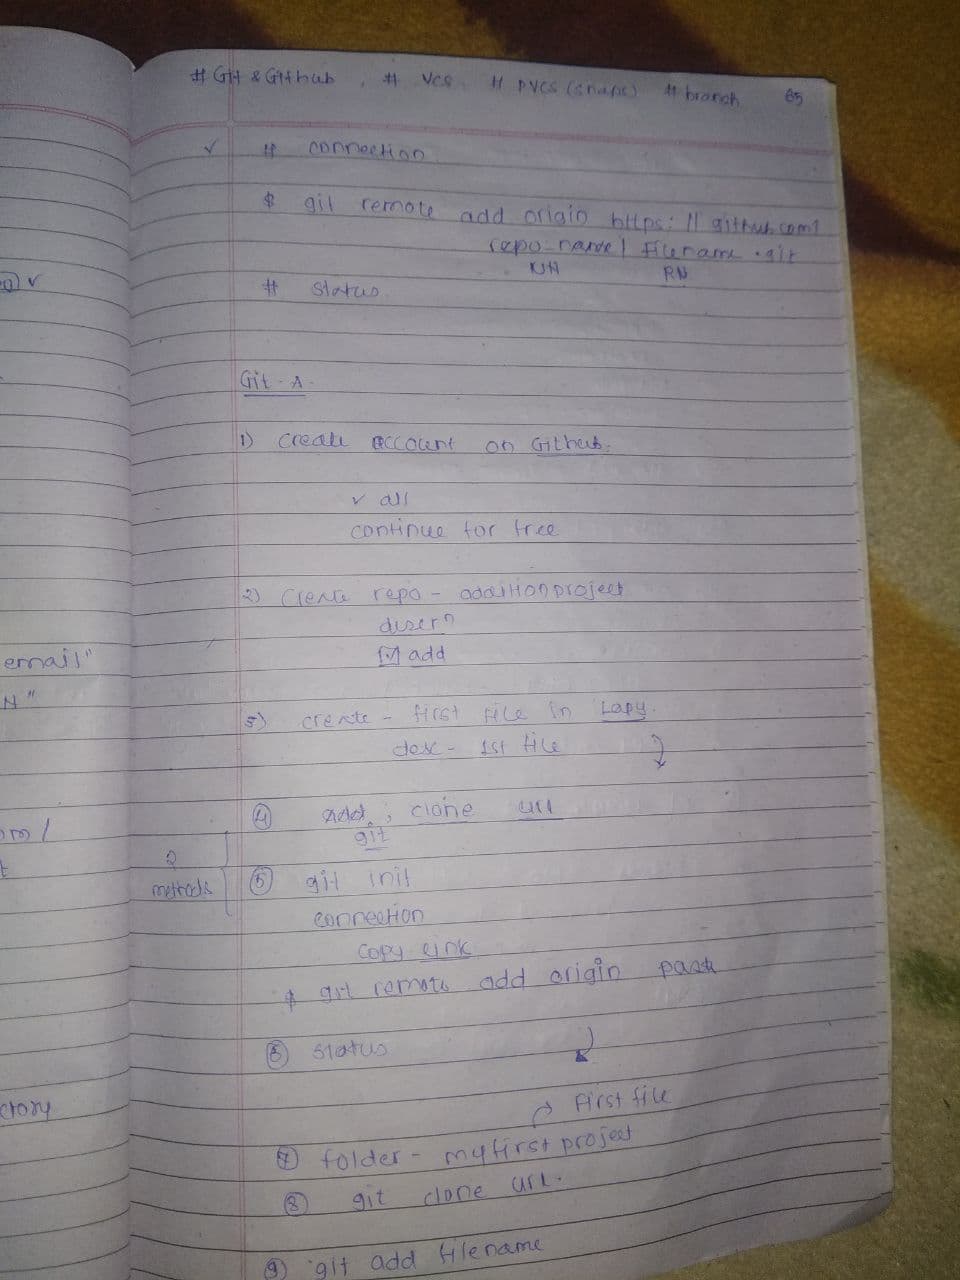 # Git & Github , # VCS # DVCS (snaps) # branch 65
✓ # connection
$ git remote add origin https://github.com/
repo-name/ filename.git
UN RN
# status
Git - A -
1) create account on Github.
✓ all
continue for free
2) Create repo - additionproject
discrn
☑ add
3) create - first file in Lapy.
desc - 1st file
④ Add, clone url
git
2
methods
⑤ git init
connection
copy link
$ git remote add origin paste
⑥ status
First file
⑦ folder - myfirst project
⑧ git clone url.
⑨ git add filename
✓
email"
N"
om/
t
ctory